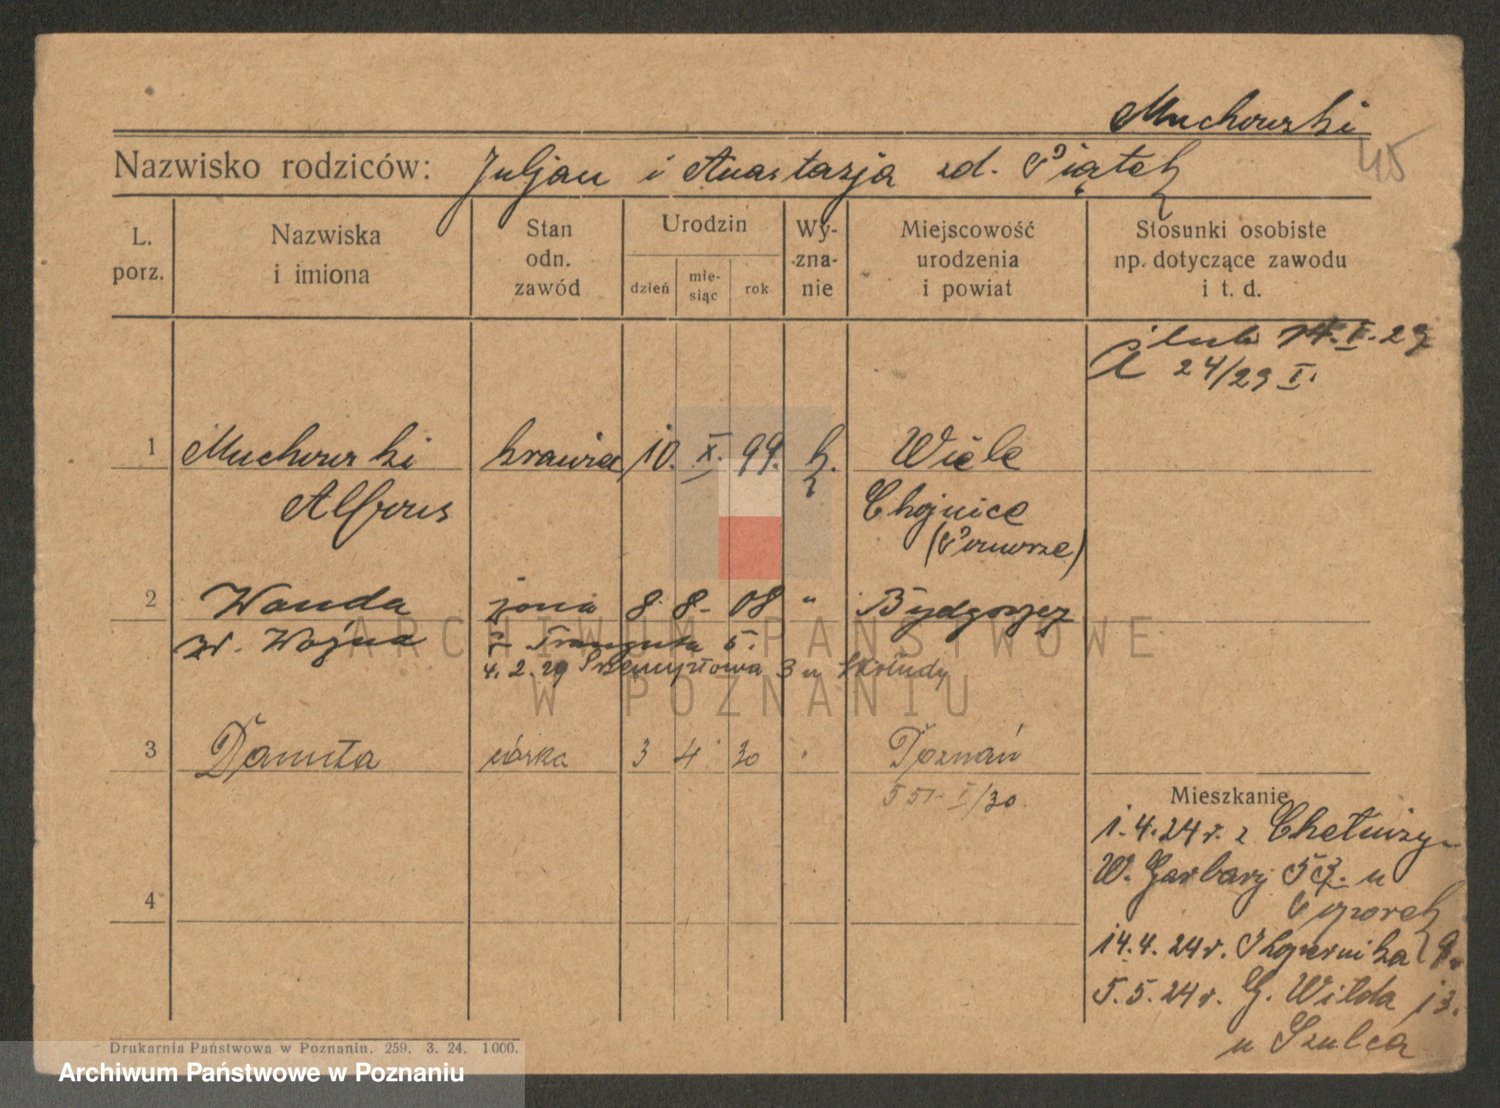 Muchowski
Nazwisko rodziców: Juljan i Anastazja zd. Piątek
45
L. porz.
Nazwiska i imiona
Stan odn. zawód
Urodzin
dzień
mie-siąc
rok
Wy-zna-nie
Miejscowość urodzenia i powiat
Stosunki osobiste np. dotyczące zawodu i t. d.
ślub 14. I. 29
24/29 I.
1 Muchowski krawiec 10. X. 99. k. Wiele
Alfons Chojnice
(Pomorze)
2 Wanda żona 8. 8. 08 " Bydgoszcz
zd. Wojna z Traugutta 5.
4.2.29 Przemysłowa 3 u
3 Danuta córka 3 4 30 " Poznań
551 I/30
Mieszkanie
1.4.24 r. z
W. Garbary 53. u
4
14.4.24 r. Kopernika 9.
5.5.24 r. G. Wilda 13.
u Szulca
Drukarnia Państwowa w Poznaniu. 259. 3. 24. 1000.
ARCHIWUM PAŃSTWOWE
W POZNANIU
Archiwum Państwowe w Poznaniu